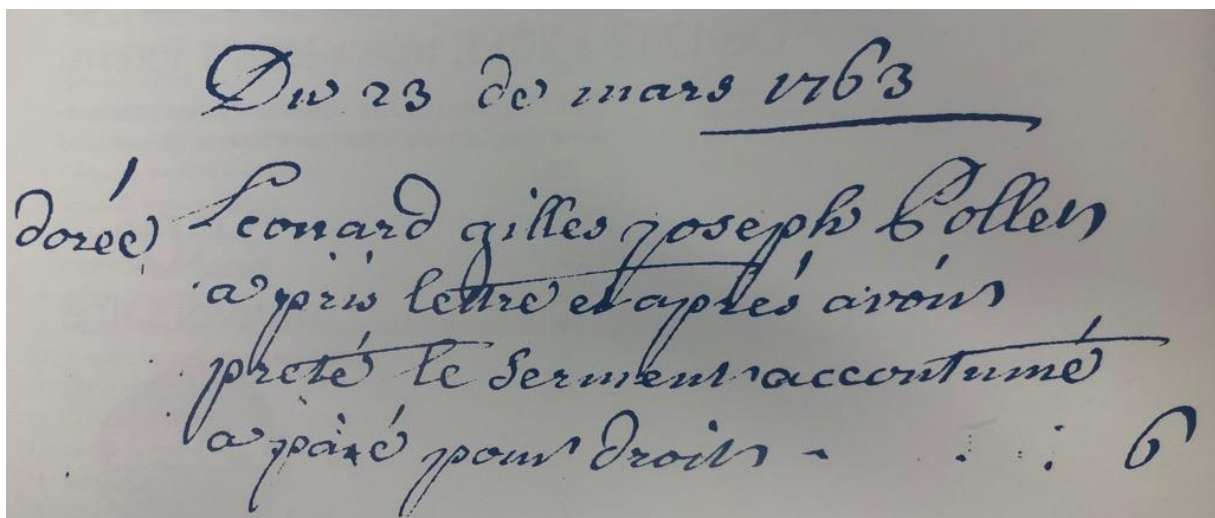 Du 23 de mars 1763
dorée Leonard gilles joseph Pollen
a pris lettre et aprés avoir
preté le serment accoutumé
a paié pour droits - . . . 6